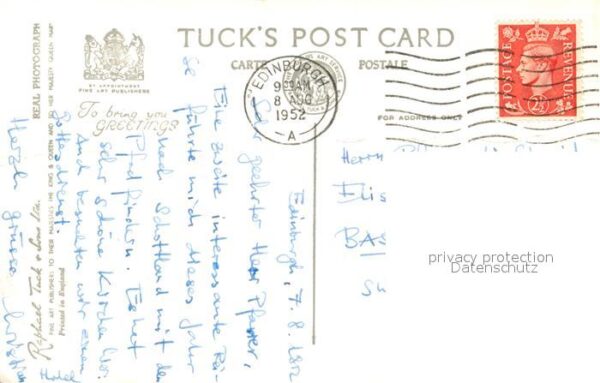 TUCK'S POST CARD
CARTE POSTALE
BY APPOINTMENT
FINE ART PUBLISHERS
To bring you
greetings
REAL PHOTOGRAPH
Raphael Tuck & Sons Ltd.
FINE ART PUBLISHERS TO THEIR MAJESTIES THE KING & QUEEN AND TO HER MAJESTY QUEEN MARY
Printed in England
FOR ADDRESS ONLY
EDINBURGH
9 30 AM
8 AUG
1952
A
POSTAGE
REVENUE
2½
Edinburgh, 7.8.1952
Sehr geehrter Herr Pfarrer,
Eine zweite interessante Rei-
se führte mich dieses Jahr
nach Schottland mit den
Pfadfindern. Es hat
sehr schöne Kirchen hier
And besuchten wir einen
Gottesdienst.
Herzl. Grüsse Christian
Hotel
Herrn
Elis
BAS
privacy protection
Datenschutz